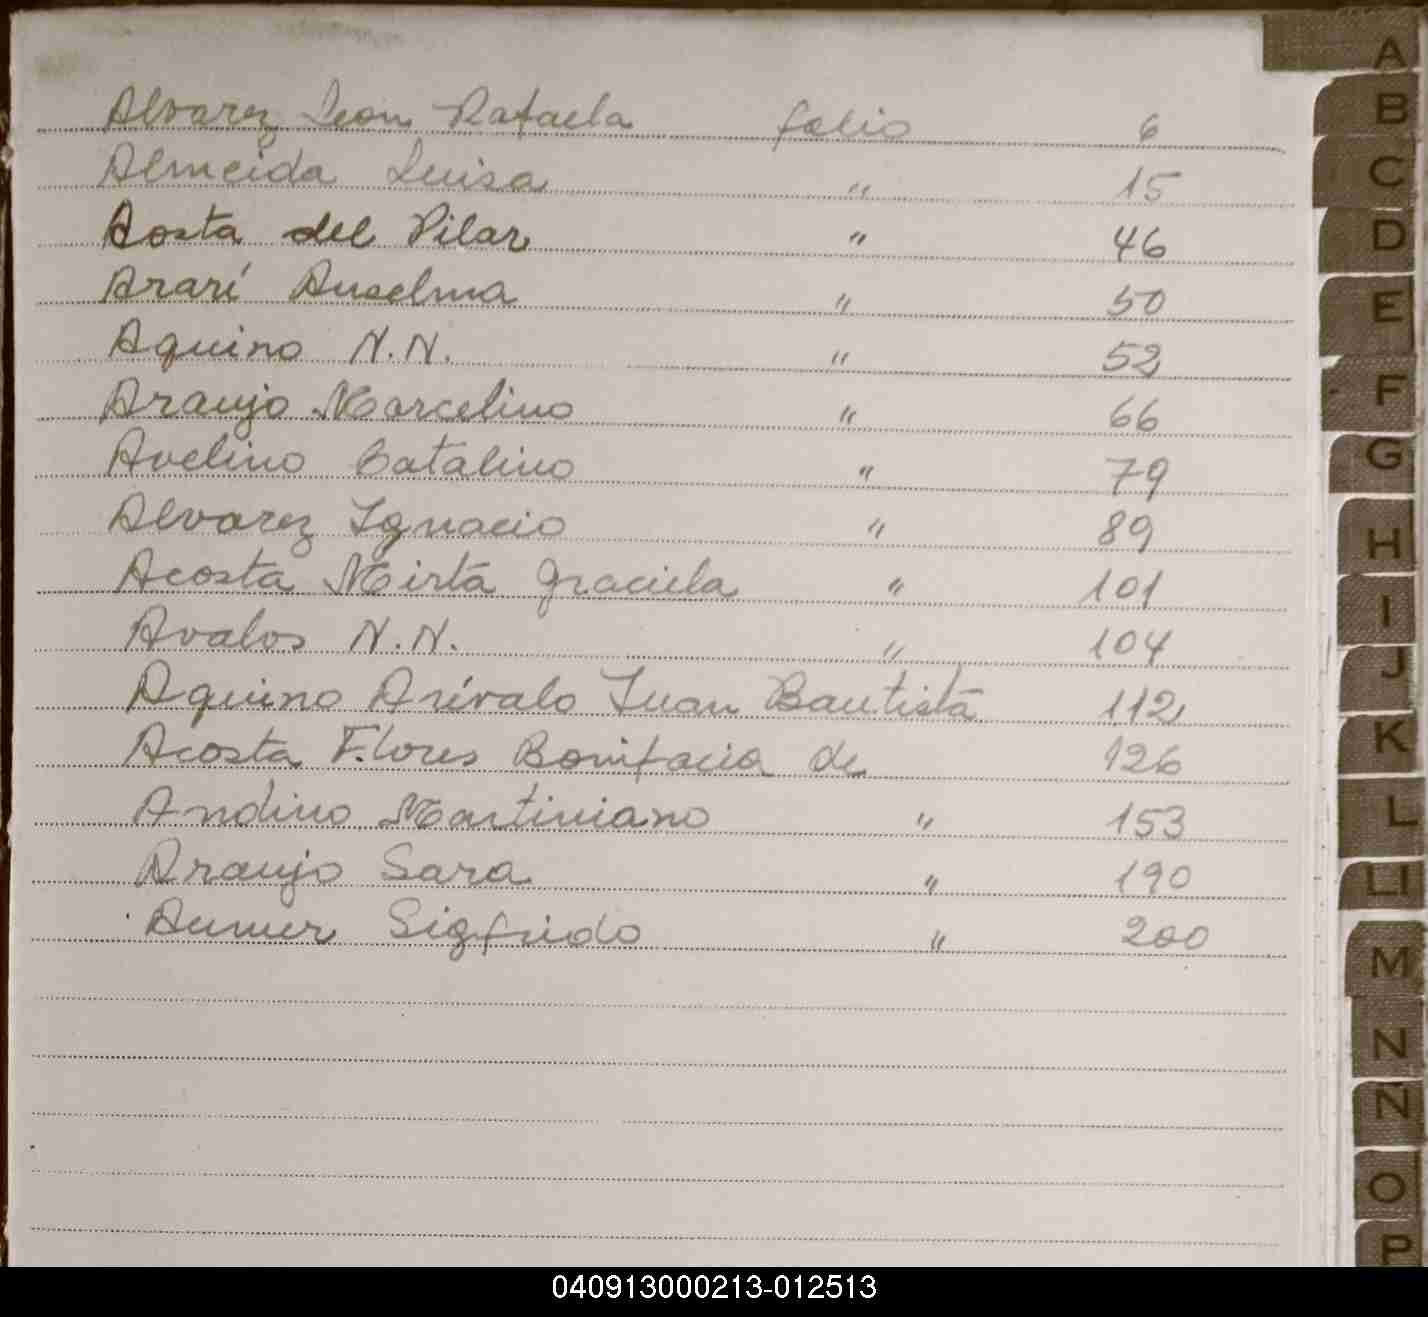 Alvarez Leon Rafaela folio 6
Almeida Luisa " 15
Acosta del Pilar " 46
Ararí Anselma " 50
Aquino N.N. " 52
Araujo Marcelino " 66
Avelino Catalino " 79
Alvarez Ignacio " 89
Acosta Mirta Graciela " 101
Avalos N.N. " 104
Aquino Arévalo Juan Bautista 112
Acosta Flores Bonifacia de 126
Andino Martiniano " 153
Araujo Sara " 190
Sigfrido " 200
A
B
C
D
E
F
G
H
I
J
K
L
LL
M
N
Ñ
O
P
040913000213-012513